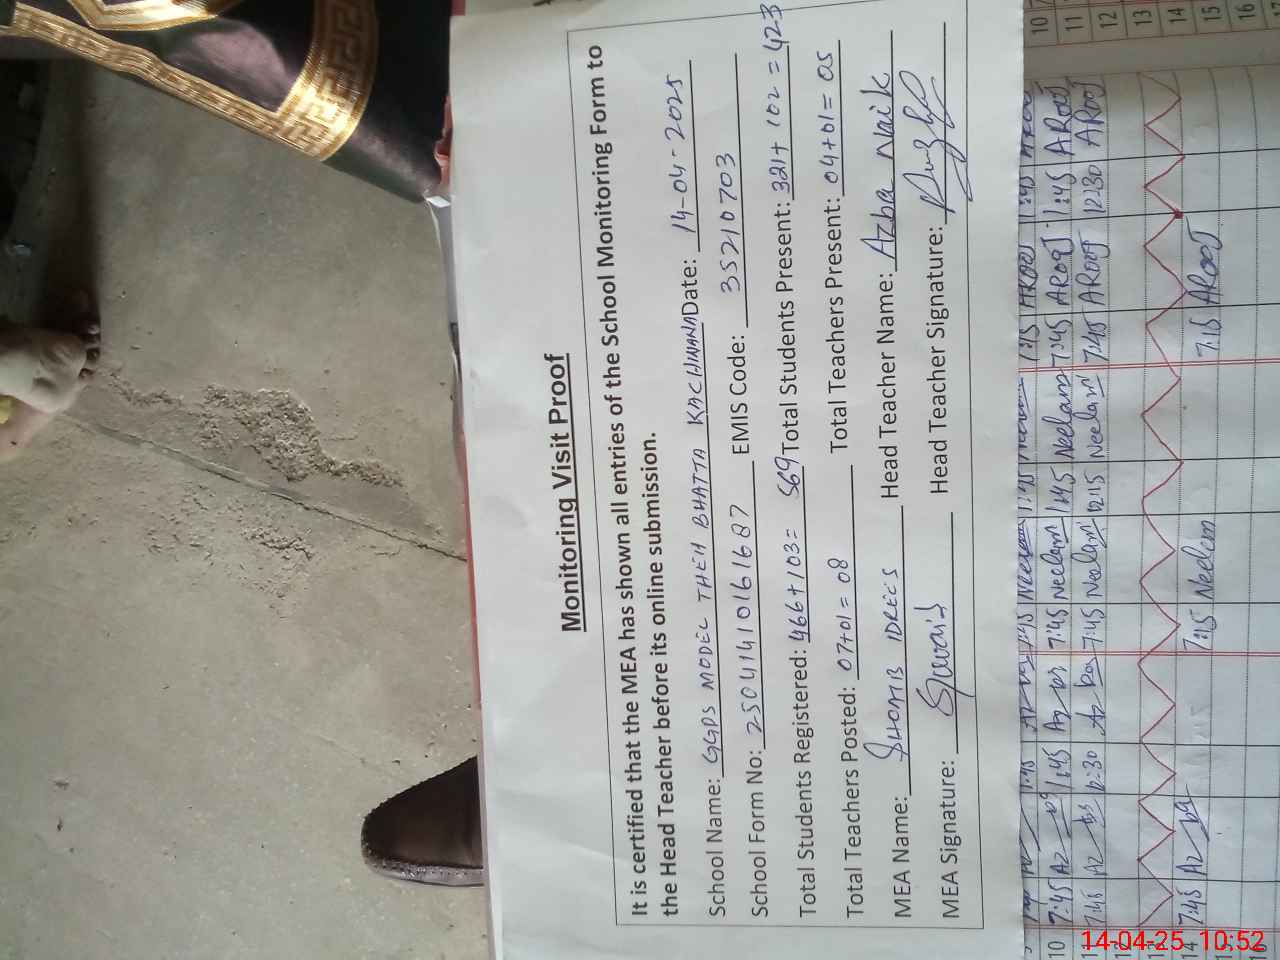 Monitoring Visit Proof
It is certified that the MEA has shown all entries of the School Monitoring Form to
the Head Teacher before its online submission.
School Name: GGPS MODEL THEH BHATTA KACHINANA Date: 14-04-2025
School Form No: 25041410161687 EMIS Code: 35210703
Total Students Registered: 466+103= 569 Total Students Present: 321+ 102 = 423
Total Teachers Posted: 07+01= 08 Total Teachers Present: 04+01= 05
MEA Name: SHOAIB IDREES Head Teacher Name: Azba Naik
MEA Signature: Head Teacher Signature:
10 7:45 1:45 7:45 Neelam 1:45 Neelam 7:45 AROOJ 1:45 AROOJ 11
11 7:45 12:30 7:45 Neelam 12:15 Neelam 7:45 AROOJ 12:30 AROOJ 12
13
14 7:45 7:15 Neelam 7:15 AROOJ 15
16
14-04-25 10:52